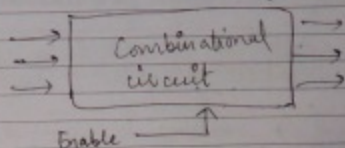 Combinational
circuit
Enable